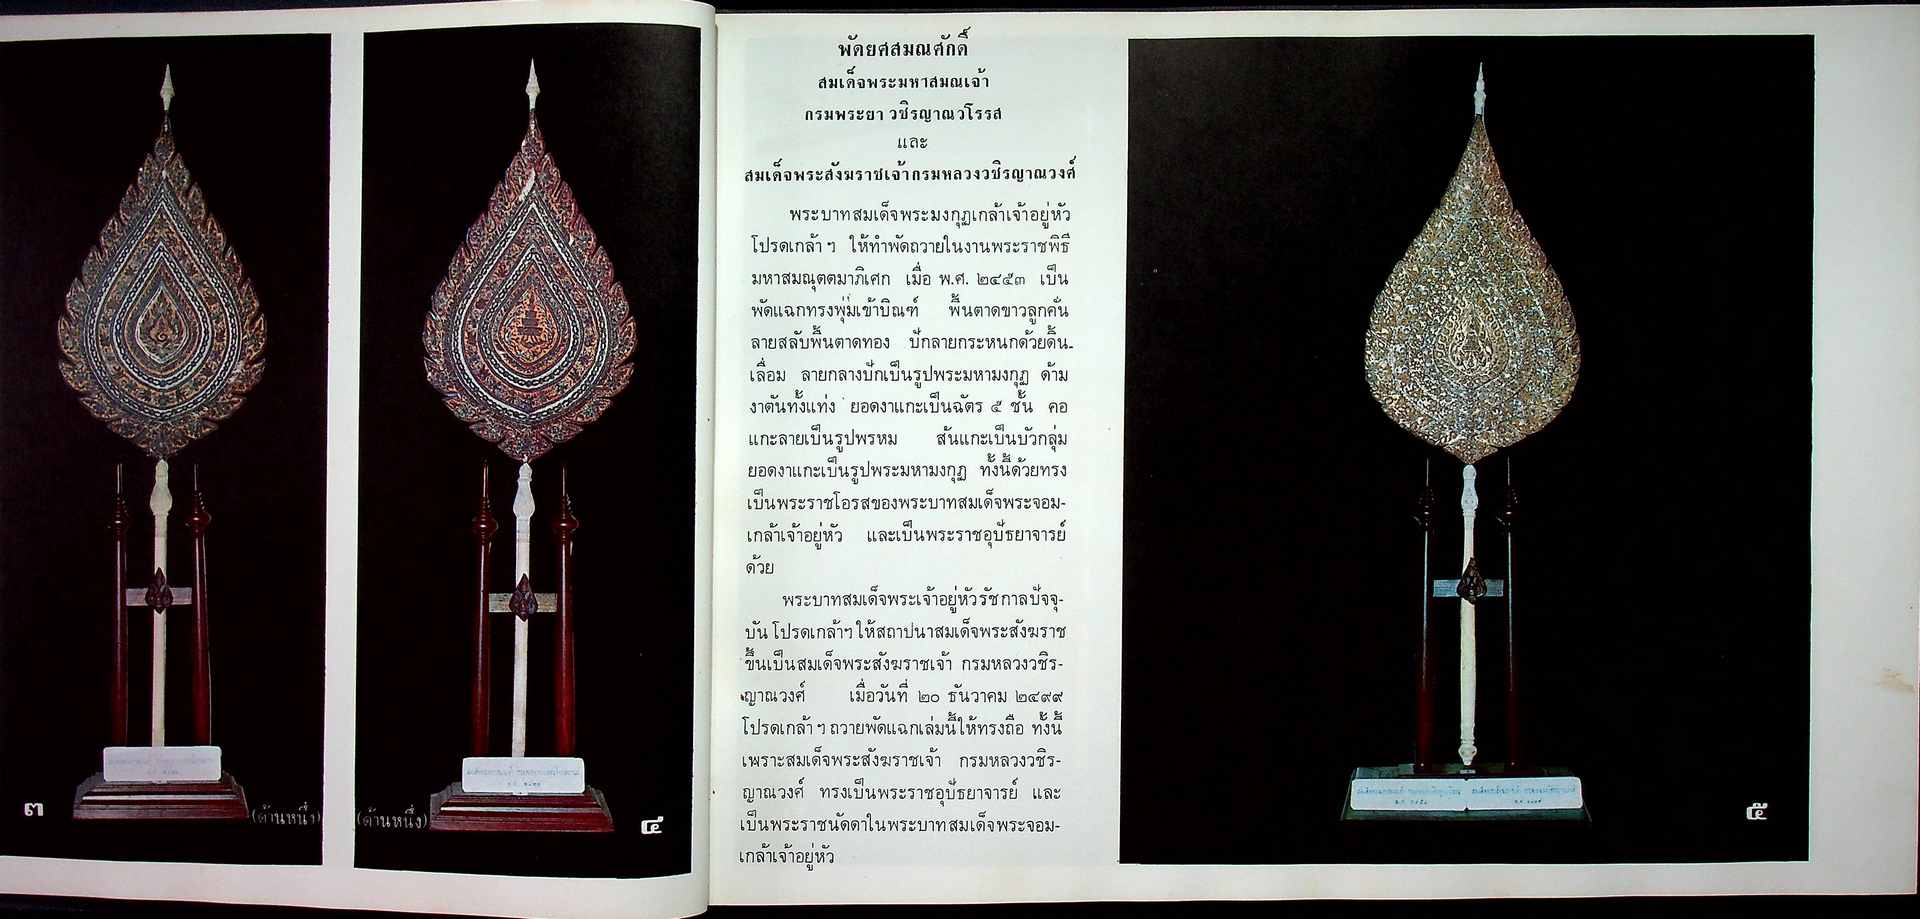 ๓
(ด้านหนึ่ง)
(ด้านหนึ่ง)
๔
พัดยศสมณศักดิ์
สมเด็จพระมหาสมณเจ้า
กรมพระยา วชิรญาณวโรรส
และ
สมเด็จพระสังฆราชเจ้ากรมหลวงวชิรญาณวงศ์
พระบาทสมเด็จพระมงกุฎเกล้าเจ้าอยู่หัว
โปรดเกล้า ฯ ให้ทำพัดถวายในงานพระราชพิธี
มหาสมณุตตมาภิเศก เมื่อ พ.ศ. ๒๔๕๓ เป็น
พัดแฉกทรงพุ่มเข้าบิณฑ์ พื้นตาดขาวลูกคั่น
ลายสลับพื้นตาดทอง ปักลายกระหนกด้วยดิ้น-
เลื่อม ลายกลางปักเป็นรูปพระมหามงกุฎ ด้าม
งาตันทั้งแท่ง ยอดงาแกะเป็นฉัตร ๕ ชั้น คอ
แกะลายเป็นรูปพรหม สันแกะเป็นบัวกลุ่ม
ยอดงาแกะเป็นรูปพระมหามงกุฎ ทั้งนี้ด้วยทรง
เป็นพระราชโอรสของพระบาทสมเด็จพระจอม-
เกล้าเจ้าอยู่หัว และเป็นพระราชอุปัธยาจารย์
ด้วย
พระบาทสมเด็จพระเจ้าอยู่หัวรัชกาลปัจจุ-
บัน โปรดเกล้าฯ ให้สถาปนาสมเด็จพระสังฆราช
ขึ้นเป็นสมเด็จพระสังฆราชเจ้า กรมหลวงวชิร-
ญาณวงศ์ เมื่อวันที่ ๒๐ ธันวาคม ๒๔๙๙
โปรดเกล้า ฯ ถวายพัดแฉกเล่มนี้ให้ทรงถือ ทั้งนี้
เพราะสมเด็จพระสังฆราชเจ้า กรมหลวงวชิร-
ญาณวงศ์ ทรงเป็นพระราชอุปัธยาจารย์ และ
เป็นพระราชนัดดาในพระบาทสมเด็จพระจอม-
เกล้าเจ้าอยู่หัว
๕